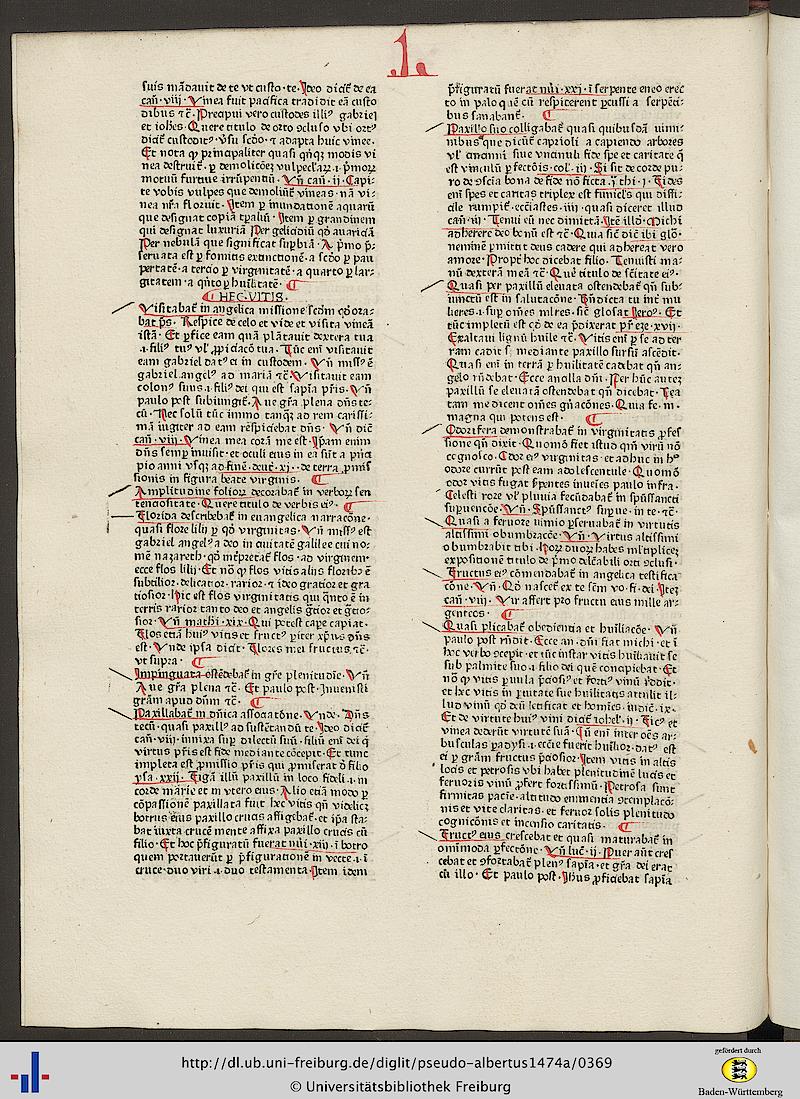 L
suis mādauit de te vt custo·te·Ideo dicit̄ de ea
can̄·viij·Vinea fuit pacifica tradidit eā custo
dibus ⁊c̄·Precipui vero custodes illiꝰ gabriel
et ioh̄es·Quere titulo de orto
dicit̄ custoditꝰ· ⁊ adapta huic vinee·
Et nota ꝙ principaliter quasi modis vi
nea destruit̄·
motuū furtiue irrūpentiū·Vn̄ can̄·ij·Capi-
te vobis vulpes que demoliūt̄ vineas·nā vi-
nea nr̄a floruit·Item ꝑ inundatione aquarū
que designat copiā Item ꝑ grandinem
qui designat luxuriā Per gelicidiū qd̄ auariciā
Per nebulā que significat suꝑbiā·A pͥmo p̄-
seruata est ꝑ fomitis extinctionē·a scd̄o ꝑ pau
pertatē·a tercio ꝑ virginitatē·a quarto ꝑ lar-
gitatem·a qͥnto ꝑ hūilitatē·
HEC·VITIS·
Visitabat̄ in angelica missione scdm
bat ꝓs̄·Respice de celo et vide et visita vineā
istā·Et ꝑfice eam quā plātauit dextera tua
·i·filiꝰ tuꝰ vl̓ Tūc em̄ visitauit
eam gabriel datꝰ ei in custodem·Vn̄ missꝰ ē
gabriel angelꝰ ad mariā ⁊c̄·Visitauit eam
colonꝰ suus·i·filiꝰ dei qui est sapīa pr̄is·Vn̄
paulo post subiungit̄·Aue gr̄a plena dn̄s te-
cū·Nec solū tūc immo tanqͣꝫ ad rem carissi-
mā iugiter ad eam respiciebat dn̄s·Vn̄ dic̄
can̄·viij·Vinea mea corā me est·Ipam enim
dn̄s semꝑ inuisit·et oculi eius in ea sūt a pͥnci
pio anni vsqꝫ ad finē·deut̄·xj·de terra ꝓmis
sionis in figura beate virginis·
Amplitudine folioꝝ decorabat̄ in verboꝝ sen
tenciositate·Quere titulo de verbis eiꝰ·
Florida describebat̄ in euangelica narracōne·
quasi flore lilij ꝑ qd̄ virginitas·Vn̄ missꝰ est
gabriel angelꝰ a deo in ciuitatē galilee cui no-
mē nazareth·qd̄ int̄pretat̄ flos·ad virginem·
ecce flos lilij·Et nō ꝙ flos vitis alijs floribꝫ ē
subtilior·delicatior·rarior·⁊ ideo gratior et gra
tiosior·Hic est flos virginitatis qui qͣnto ē in
terris rarior tanto deo et angelis gͣtior et gͣtio-
sior·Vn̄ mathī·xix·Qui potest cape capiat·
Flos etiā huiꝰ vitis et fructꝰ ꝑiter xp̄us dn̄s
est·Vnde ipsa dicit·Flores mei fructus ⁊c̄·
vt supra·
Impinguata ostēdebat̄ in gr̄e plenitudīe·Vn̄
Aue gr̄a plena ⁊c̄·Et paulo post·Inuenisti
grām apud dn̄m ⁊c̄·
Paxillabat̄ in dn̄ica associatōne·Vnde·Dn̄s
tecū·quasi paxillꝰ ad sustētandū te·Ideo dicit̄
can̄·viij·innixa suꝑ dilectū suū·filiū em̄ dei qͥ
virtus pr̄is est fide mediante cōcepit·Et tunc
impleta est ꝓmissio pr̄is qui ꝓmiserat ō filio
ysa·xxij·Figā illū paxillū in loco fideli·i·in
corde marie et in vtero eius·Alio etiā modo ꝑ
cōpassionē paxillata fuit hec vitis qn̄ videlicꝫ
botrus eius paxillo crucis affigebat̄·et ipa sta-
bat iuxta crucē mente affixa paxillo crucis cū
filio·Et hoc p̄figuratū fuerat nūi·xiij·ī botro
quem portauerūt ꝑ p̄figurationē in vecte·i·ī
cruce·duo viri·i·duo testamenta·Item idem
p̄figuratū fuerat nūi·xxj·ī serpente eneo erec
to in palo quē cū respicerent ꝑcussi a serpēti-
bus sanabant̄·
Paxillo suo colligabat̄ quasi quibusdā uimi-
nibus que dicūt̄ caprioli a capiendo arbores
vl̓ ananni siue vincula fide spe et caritate qͥ
est vinculū ꝑfectōis·col̄·iij·Si sit de corde pu-
ro ⁊ ꝯscīa bona ⁊ fide nō ficta·j·thī·j·Fides
em̄ spes et caritas triplex est funicl̓s qui diffi-
cile rumpit̄·eccl̄iastes·iiij·quasi diceret illud
can̄·iij·Tenui eū nec dimittā·Itē illd̓·Michi
adherere deo bonū est ⁊c̄·Quia sic̄ dic̄ ibi glo·
neminē ꝑmittit deus cadere qui adhereat vero
amore·Propt̓ hoc dicebat filio·Tenuisti ma-
nū dexterā meā ⁊c̄·Que titulo de scītate eiꝰ·
Quasi per paxillū eleuata ostendebat̄ qn̄ sub-
iunctū est in salutacōne·Bn̄dicta tu int̓ mu
lieres·i·suꝑ om̄es mlr̄es·sic̄ glosat Ieroꝰ·Et
tūc impletū est qd̓ de ea p̄dixerat ꝓr̄ eze·xvij·
Exaltaui lignū huīle ⁊c̄·Vitis em̄ ꝑ se ad ter
ram cadit s; mediante paxillo sursū ascēdit·
Quasi em̄ in terrā ꝑ huīlitatē cadebat qn̄ an-
gelo rn̄debat·Ecce ancilla dn̄i·Per hūc autē
paxillū se eleuatā ostendebat qn̄ dicebat·Bea
tam me dicent om̄es gn̄acōnes·Quia fe·m·
magna qui potens est·
Odorifera demonstrabat̄ in virginitatis ꝓfes
sione qn̄ dixit·Quomō fiet istud qn̄ virū nō
cognosco·Odor eiꝰ virginitas·et adhuc in hͦ
odore currūt post eam adolescentule·Quomō
odor vitis fugat ſerpentes inuenies paulo infra·
Celesti rore vl̓ pluuia fecūdabat̄ in sp̄ussancti
supuencōe·Vn̄·Sp̄ussanctꝰ supue·in te·⁊c̄·
Quasi a feruore nimio p̄seruabat̄ in virtutis
altissimi obumbracōe·Vn̄·Virtus altissimi
obumbrabit tibi·Hoꝝ duoꝝ habes ml̓tiplicꝫ
expositionē titulo de pͥmo delcābili orti ꝯclusi·
Fructus eiꝰ cōmendabat̄ in angelica testifica
cōne·Vn̄·Qd̓ nascet̄ ex te sc̄m vo·fi·dei·Itē
can̄·viij·Vir affert pro fructu eius mille ar-
genteos·
Quasi plicabat̄ obediencia et huīliacōe·Vn̄
paulo post rn̄dit·Ecce an·dn̄i fiat michi·et ī
hoc verbo ꝯcepit·et tūc instar vitis huīliauit se
sub palmite suo·i·filio dei quē concipiebat·Et
nō ꝙ vitis ꝑuula ꝓciosꝰ et fortꝰ vinū reddit·
et hec vitis in ꝑuitate sue huīlitatis attulit il-
lud vinū qd̓ deū letificat et homīes·iudic̄·ix·
Et de virtute huiꝰ vini dicit̄ iohel̓·ij·Ficꝰ et
vinea dederūt virtutē suā·In em̄ inter oēs ar-
busculas padysi·i·eccīe fuerit huīlior·datꝰ est
ei ꝑ grām fructus p̄ciosior·Item vitis in altis
locis et petrosis vbi habet plenitudinē lucis et
feruoris vinū ꝓfert fortissimū·Petrosa sunt
firmitas pacīe·altitudo eminentia ꝯtemplacō-
nis et vite claritas·et feruor solis plenitudo
cognicōnis et incensio caritatis·
Fructꝰ eius crescebat et quasi maturabat̄ in
omīmoda ꝑfectōne·Vn̄ luc̄·ij·Puer aūt cres
cebat et ꝯfortabat̄ plenꝰ sapīa·et gr̄a dei erat
cū illo·Et paulo post·Ih̄us ꝓficiebat sapīa
http://dl.ub.uni-freiburg.de/diglit/pseudo-albertus1474a/0369
© Universitätsbibliothek Freiburg
gefördert durch
Baden-Württemberg